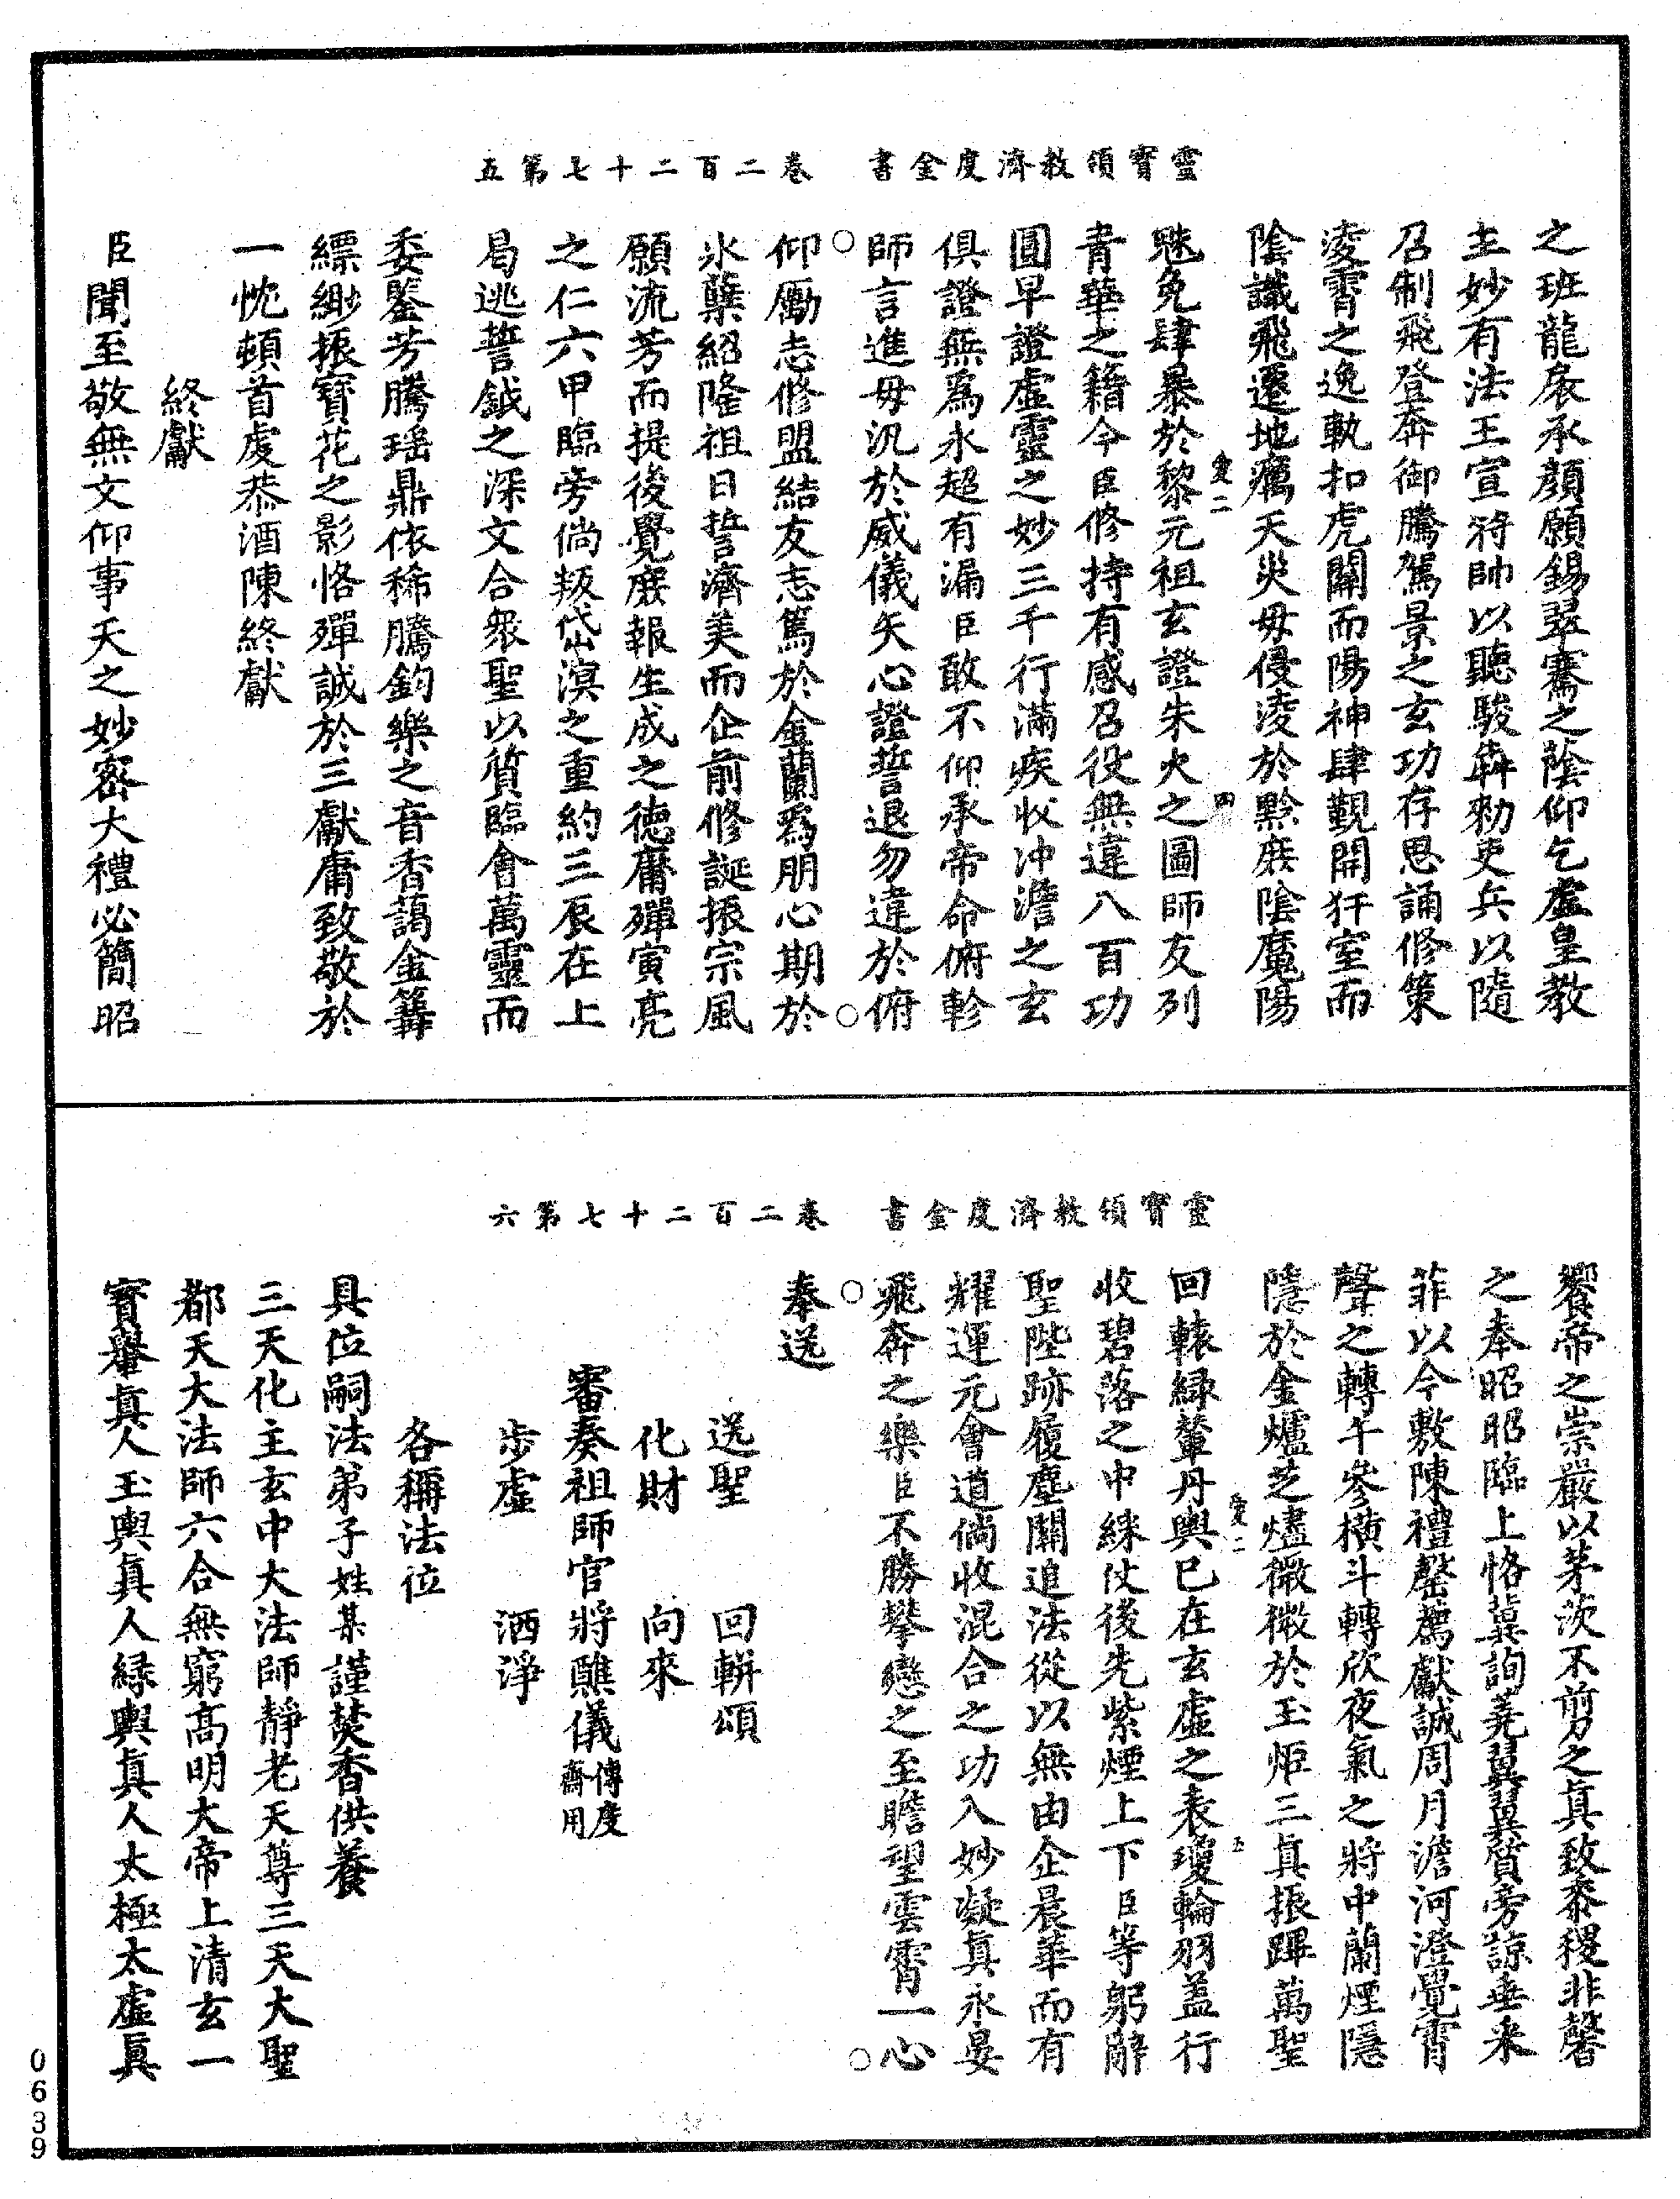 靈寶領教濟度金書　卷二百二十七第五
之班龍扆承顏願錫翠騫之蔭仰乞虛皇教
主妙有法王宣符帥以聽駿犇勑吏兵以隨
召制飛登奔御騰駕景之玄功存思誦修策
凌霄之逸軌扣虎關而陽神肆覲開犴室而
陰讖飛遷地癘天災毋侵淩於黔庶陰魔陽
魅免肆暴於黎元祖玄證朱火之圖師友列
青華之籍今臣修持有感召役無違八百功
圓早證虛靈之妙三千行滿疾收冲澹之玄
俱證無為永超有漏臣敢不仰承帝命俯軫
師言進毋汎於威儀矢心證誓退勿違於俯
仰勵志修盟結友志篤於金蘭為朋心期於
氷蘗紹隆祖日誓濟美而企前修誕振宗風
願流芳而提後覺庶報生成之德庸殫寅亮
之仁六甲臨旁倘叛岱溟之重約三辰在上
局逃誓鉞之深文合眾聖以質臨會萬靈而
委鑒芳騰瑤鼎依稀騰鈞樂之音香藹金籌
縹緲振寶花之影恪殫誠於三獻庸致敬於
一忱頓首虔恭酒陳終獻
終獻
臣聞至敬無文仰事天之妙密大禮必簡昭
愛二
四
靈寶領教濟度金書　卷二百二十七第六
饗帝之崇嚴以茅茨不剪之真致黍稷非馨
之奉昭昭臨上恪冀詢蕘翼翼質旁諒垂采
菲以今敷陳禮罄薦獻誠周月澹河澄覺霄
聲之轉午參橫斗轉欣夜氣之將中蘭煙隱
隱於金爐芝燼微微於玉炬三真振蹕萬聖
回轅緑輦丹輿已在玄虛之表瓊輪羽蓋行
收碧落之中綵仗後先紫煙上下臣等躬辭
聖陛跡履塵關追法從以無由企晨華而有
耀運元會道倘收混合之功入妙凝真永晏
飛奔之樂臣不勝攀戀之至瞻望雲霄一心
奉送
送聖　回軿頌
化財　向來
審奏祖師官將醮儀傳度齋用
步虛　洒淨
各稱法位
具位嗣法弟子姓某謹焚香供養
三天化主玄中大法師靜老天尊三天大聖
都天大法師六合無窮高明大帝上清玄一
寶轝真人玉輿真人綠輿真人太極太虛真
愛二
五
0639